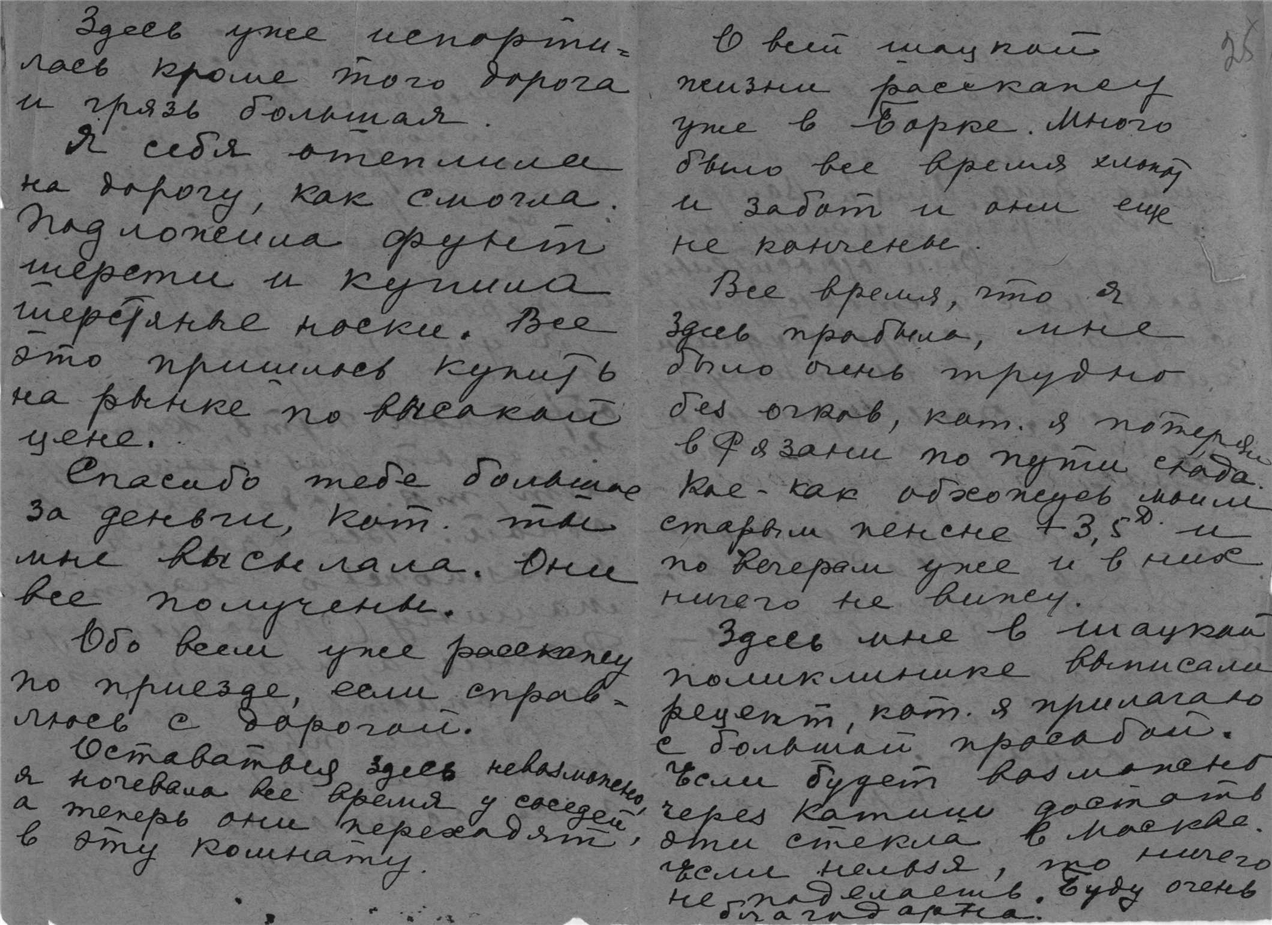 Здесь уже испорти=
лась кроме того дорога
и грязь большая.
Я себя отеплила
на дорогу, как смогла.
Подложила фунт
шерсти и купила
шерстяные носки. Все
это пришлось купить
на рынке по высокой
цене.
Спасибо тебе большое
за деньги, кот. ты
мне высылала. Они
все получены.
Обо всем уже расскажу
по приезде, если справ-
люсь с дорогой.
Оставаться здесь невозможно,
я ночевала все время у соседей,
а теперь они переходят
в эту комнату.
25
О всей шацкой
жизни расскажу
уже в Борке. Много
было все время хлопот
и забот и они еще
не кончены.
Все время, что я
здесь пробыла, мне
было очень трудно
без очков, кот. я потеряла
в Рязани по пути сюда.
Кое-как обхожусь моим
старым пенсне +3,5 D. и
по вечерам уже и в них
ничего не вижу.
Здесь мне в шацкой
поликлинике выписали
рецепт, кот. я прилагаю
с большой просьбой.
Если будет возможно
через Катиш достать
эти стекла в Москве.
Если нельзя, то ничего
не поделаешь. Буду очень
благодарна.